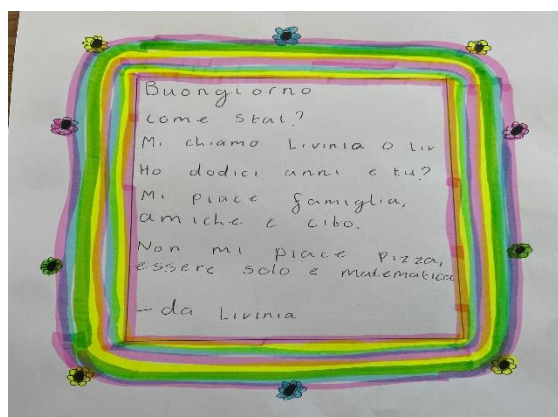 Buongiorno
come stai?
Mi chiamo Livinia o Liv
Ho dodici anni e tu?
Mi piace famiglia,
amiche e cibo.
Non mi piace pizza,
essere solo e matematica
- da Livinia